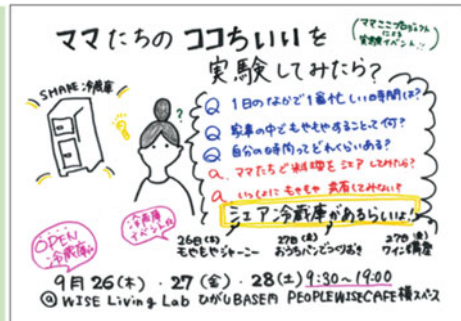 ママたちの ココちいいを
実験してみたら?
(ママここプロジェクト
による
実験イベント!!)
SHARE 冷蔵庫
?
Q 1日のなかで1番忙しい時間は?
Q 家事の中でもやもやすることって何?
Q 自分の時間ってどれくらいある?
Q. ママたちで料理をシェアしてみたら?
Q. いっしょにもやもや共有してみない?
シェア冷蔵庫があるらしいよ!
OPEN
冷蔵庫
冷蔵庫
イベント
26日(木)
もやもやジャーニー
27日(金)
おうちパンとつくりおき
27日(金)
ワイン講座
9月26(木)・27(金)・28(土) 9:30~19:00
@ WISE Living Lab ひがしBASE内 PEOPLEWISECAFE横スペース